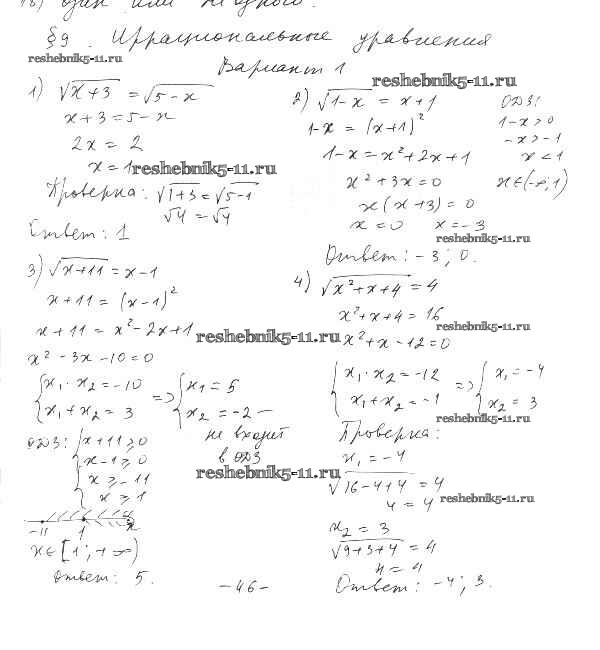 18) один или ни одного.
§9. Иррациональные уравнения
reshebnik5-11.ru
Вариант 1
reshebnik5-11.ru
1) √x+3 = √5-x
x+3 = 5-x
2x = 2
x = 1
reshebnik5-11.ru
Проверка: √1+3 = √5-1
√4 = √4
Ответ: 1
2) √1-x = x+1
1-x = (x+1)²
1-x = x²+2x+1
x²+3x = 0
x(x+3) = 0
x = 0 x = -3
reshebnik5-11.ru
Ответ: -3; 0.
ОДЗ:
1-x>0
-x>-1
x<1
x∈(-∞; 1)
3) √x+11 = x-1
x+11 = (x-1)²
x+11 = x²-2x+1
reshebnik5-11.ru
x²-3x-10=0
{x₁·x₂=-10
{x₁+x₂=3
=> {x₁=5
{x₂=-2 —
не входит
в ОДЗ
ОДЗ: {x+11≥0
{x-1≥0
{x≥-11
{x≥1
reshebnik5-11.ru
-11 1 x
x∈[1; +∞)
Ответ: 5.
4) √x²+x+4 = 4
x²+x+4 = 16
reshebnik5-11.ru
x²+x-12=0
{x₁·x₂=-12
{x₁+x₂=-1
=> {x₁=-4
{x₂=3
reshebnik5-11.ru
Проверка:
x₁=-4
√16-4+4 = 4
4 = 4
reshebnik5-11.ru
x₂ = 3
√9+3+4 = 4
4 = 4
Ответ: -4; 3.
-46-